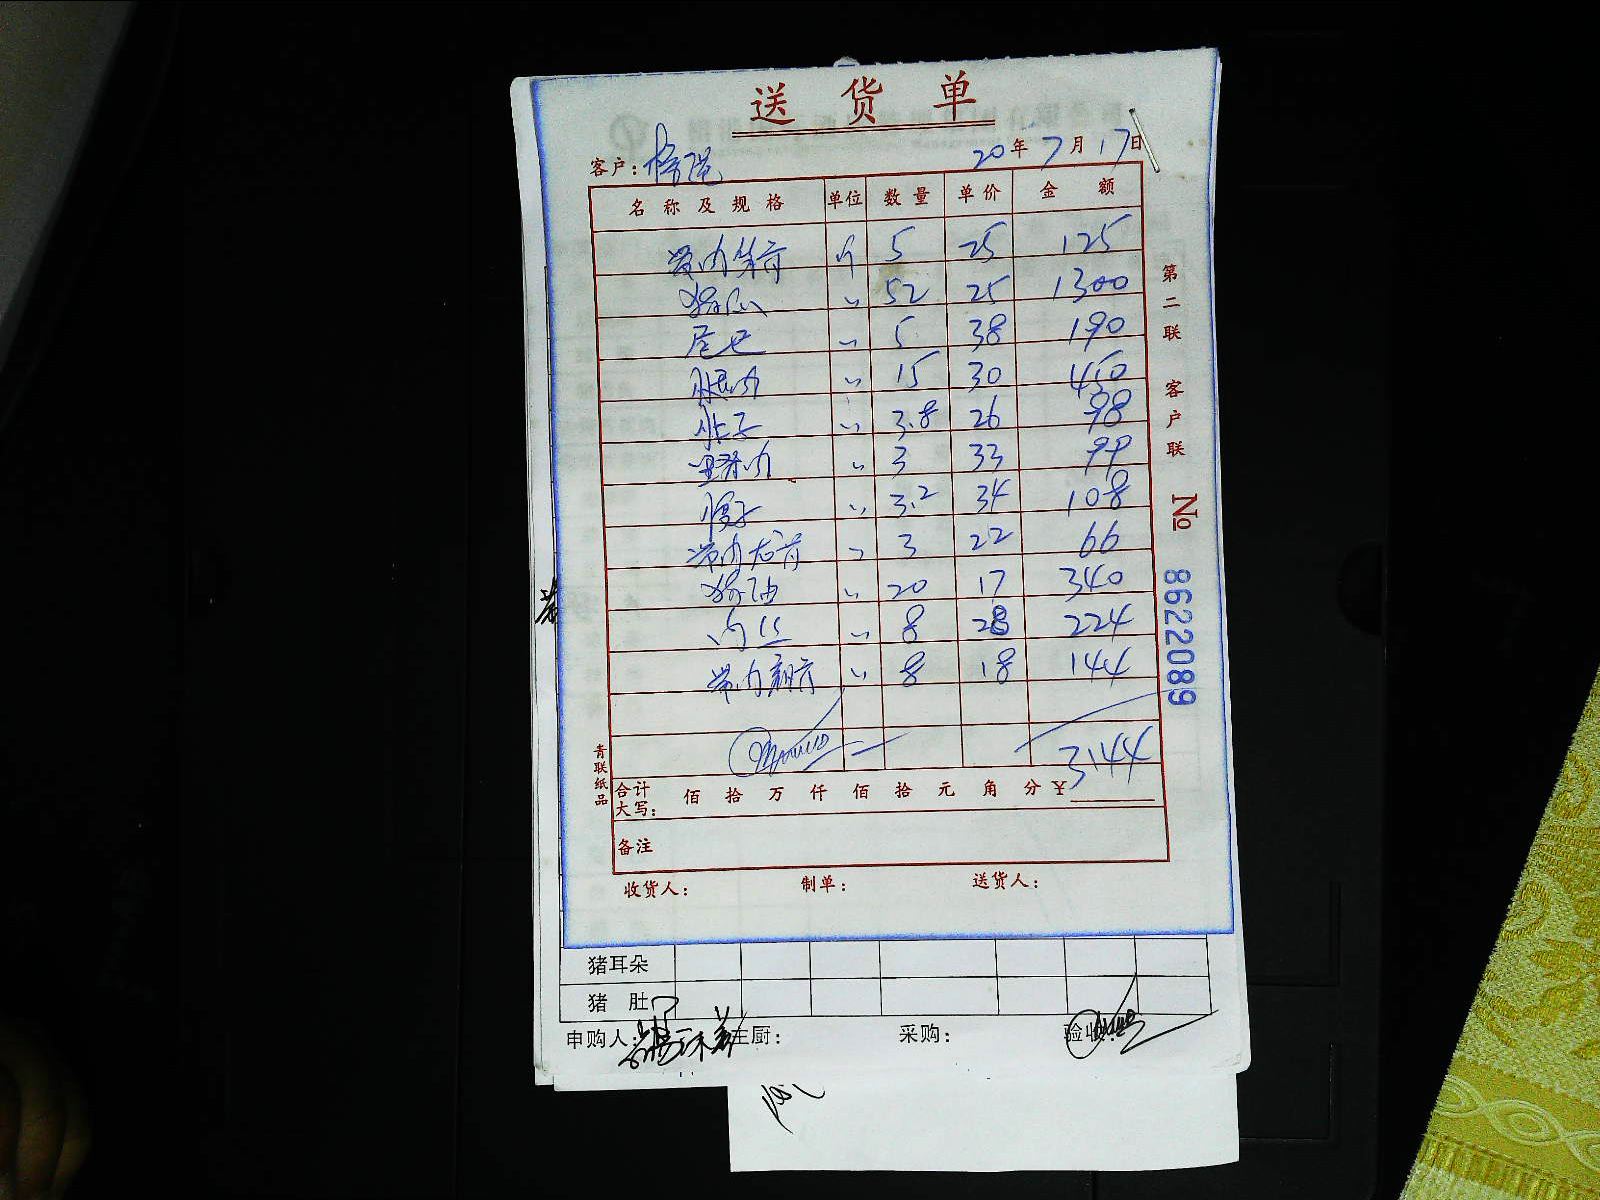 送货单
客户： 20年7月17日
名称及规格 单位 数量 单价 金额
带肉 斤 5 25 125
猪 〃 52 25 1300
〃 5 38 190
腿肉 〃 15 30 450
肚子 〃 3.8 26 98
里脊肉 〃 3 33 99
腰子 〃 3.2 34 108
带肉龙骨 〃 3 22 66
猪油 〃 20 17 340
肉丝 〃 8 28 224
带肉扇骨 〃 8 18 144
3144
合计大写： 佰 拾 万 仟 佰 拾 元 角 分 ¥
备注
收货人： 制单： 送货人：
第二联 客户联 № 8622089
青联纸品
猪耳朵
猪肚
申购人： 主厨： 采购： 验收：